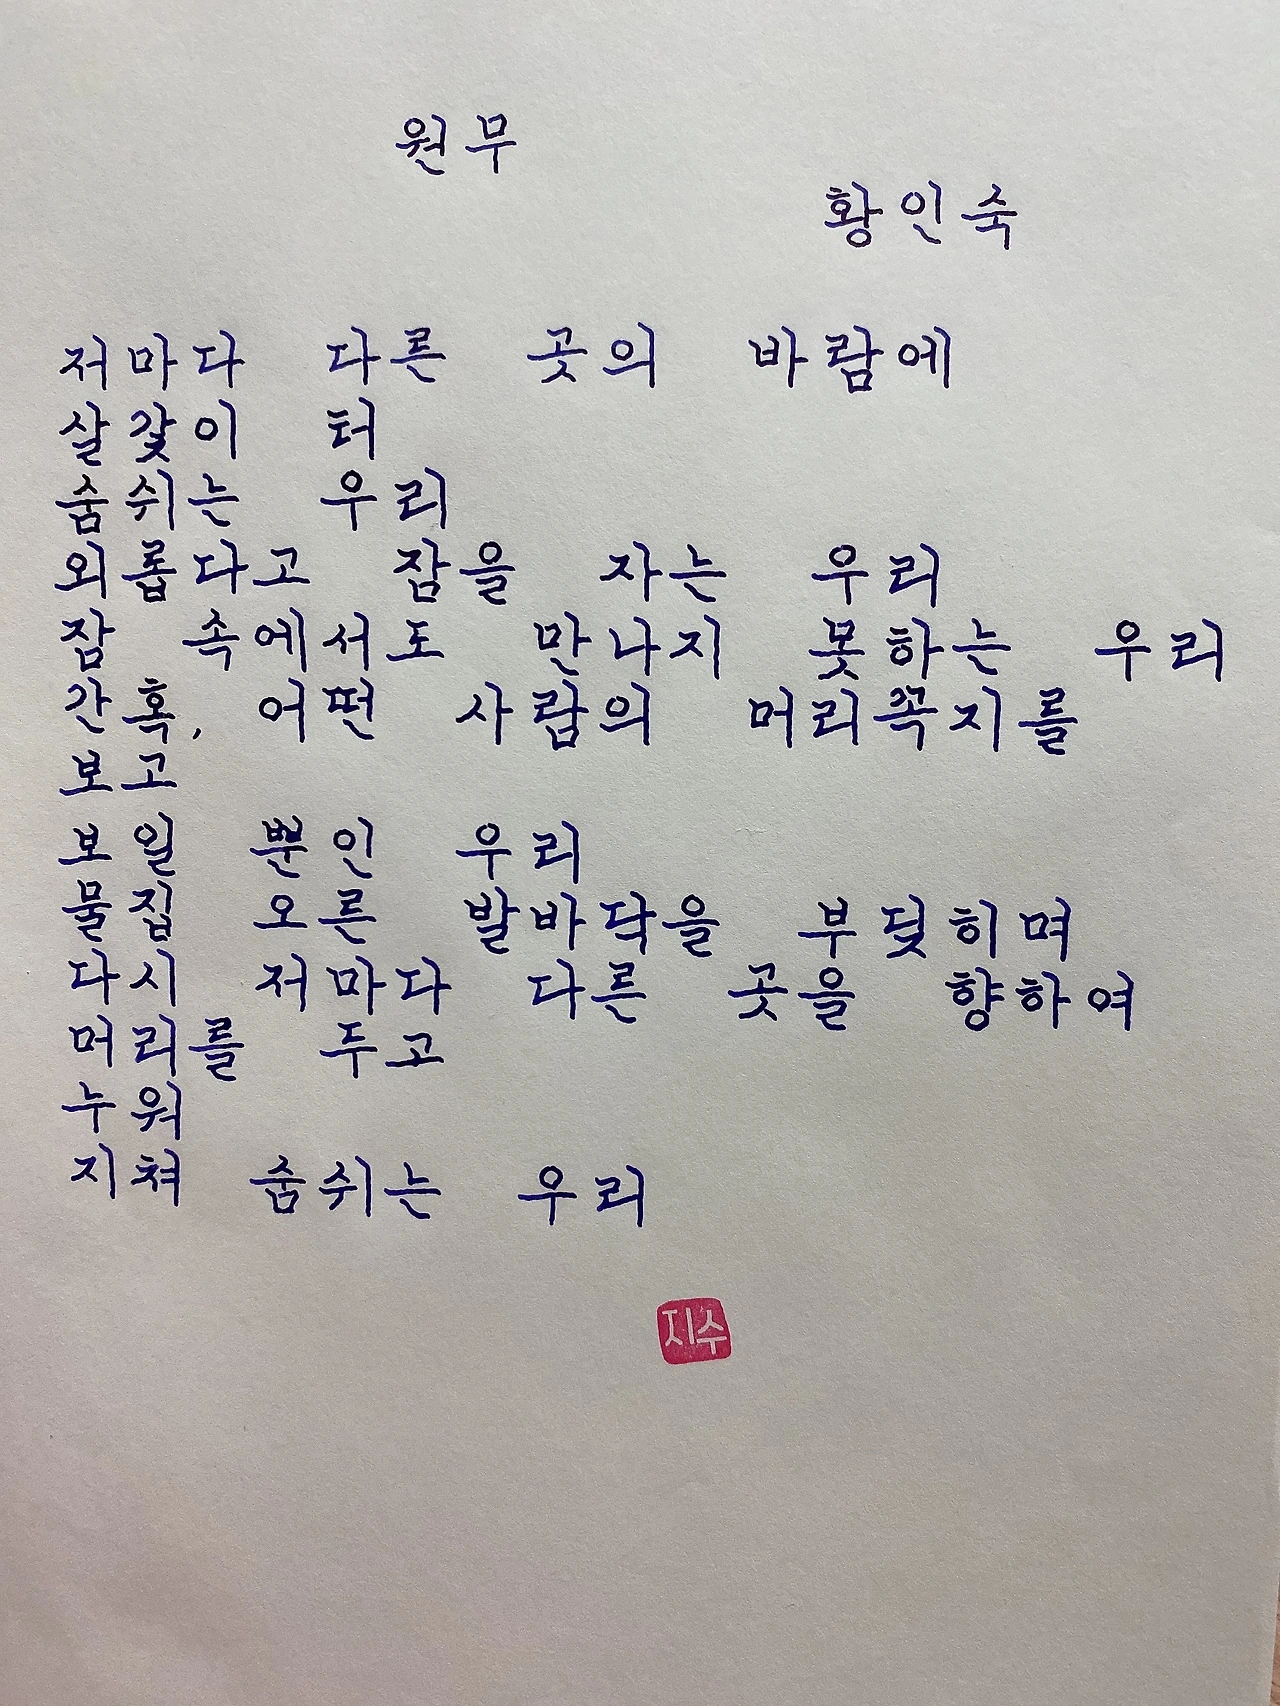 원무
황인숙
저마다 다른 곳의 바람에
살갗이 터
숨쉬는 우리
외롭다고 잠을 자는 우리
잠 속에서도 만나지 못하는 우리
간혹, 어떤 사람의 머리꼭지를
보고
보일 뿐인 우리
물집 오른 발바닥을 부딪히며
다시 저마다 다른 곳을 향하여
머리를 두고
누워
지쳐 숨쉬는 우리
지수